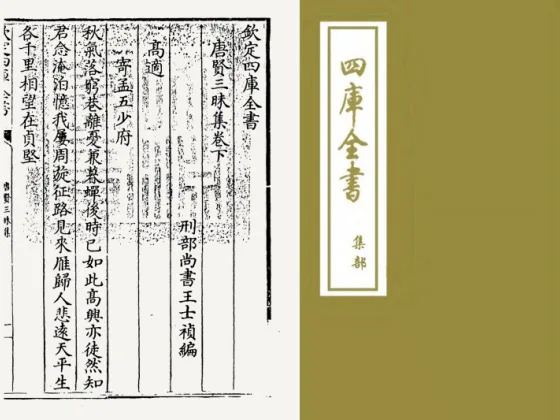 欽定四庫全書
唐賢三昧集卷下
刑部尚書王士禎編
高適
寄孟五少府
秋氣落窮巷離憂兼暮蟬後時已如此高興亦徒然知
君念淹泊憶我屢周旋征路見來雁歸人悲遠天平生
各千里相望在貞堅
欽定四庫全書
唐賢三昧集
四庫全書
集部